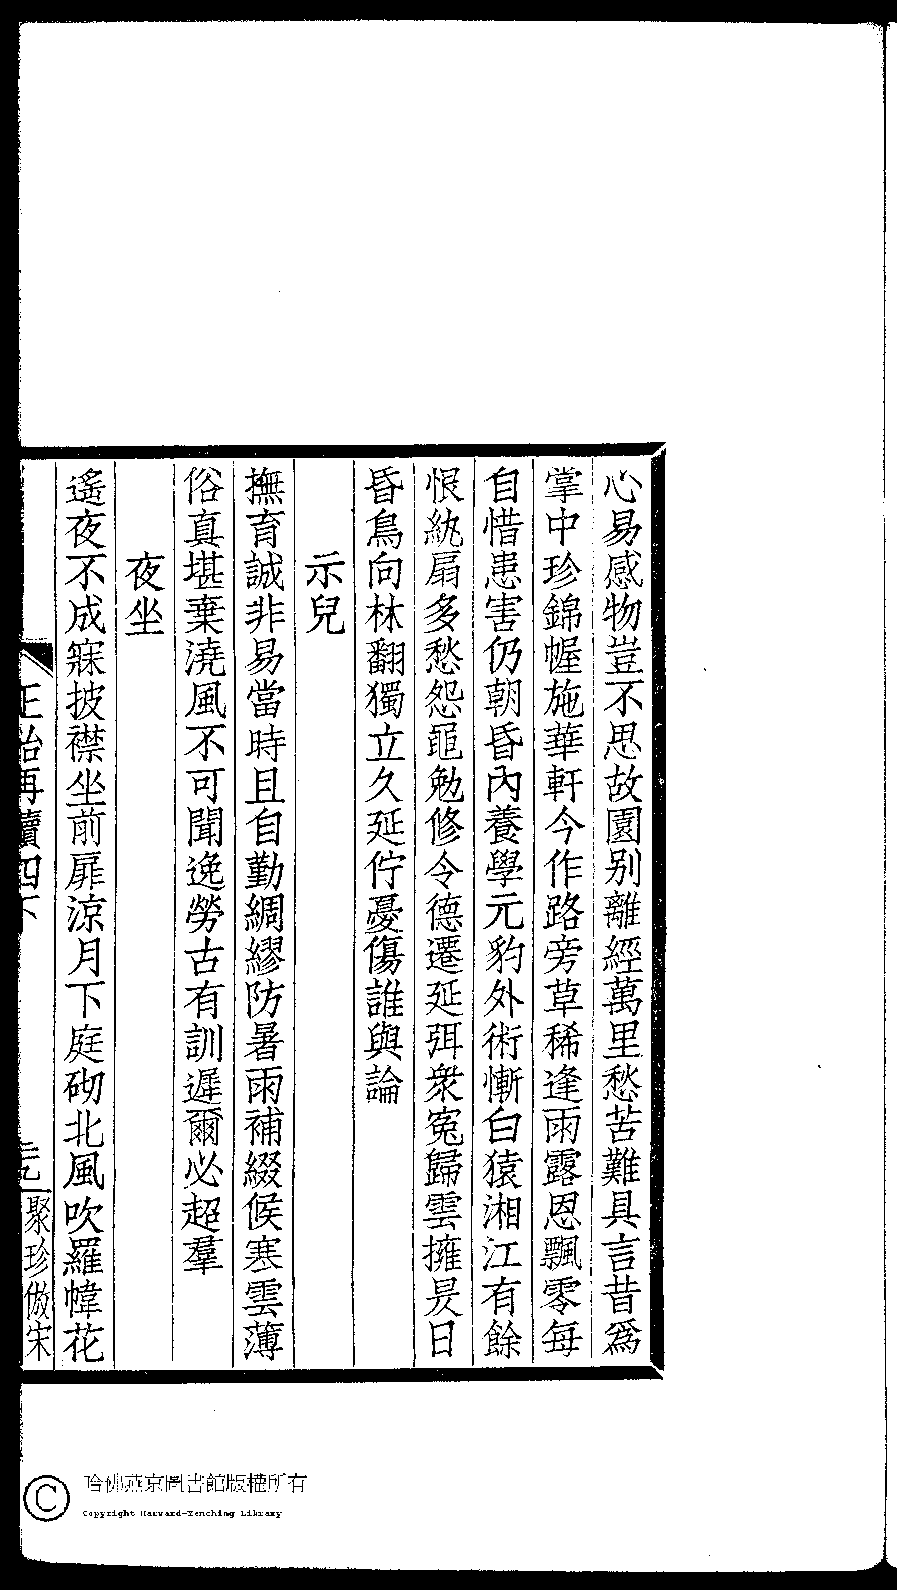 心易感物豈不思故園別離經萬里愁苦難具言昔為
掌中珍錦幄施華軒今作路旁草稀逢雨露恩飄零每
自惜患害仍朝昏內養學元豹外術慚白猿湘江有餘
恨紈扇多愁怨黽勉修令德遷延弭衆寃歸雲擁昃日
昏鳥向林翻獨立久延佇憂傷誰與論
示兒
撫育誠非易當時且自勤綢繆防暑雨補綴候寒雲薄
俗真堪棄澆風不可聞逸勞古有訓遲爾必超羣
夜坐
遙夜不成寐披襟坐前扉涼月下庭砌北風吹羅幃花
正始再續四下
元
聚珍倣宋
哈佛燕京圖書館版權所有
Copyright Harvard-Yenching Library